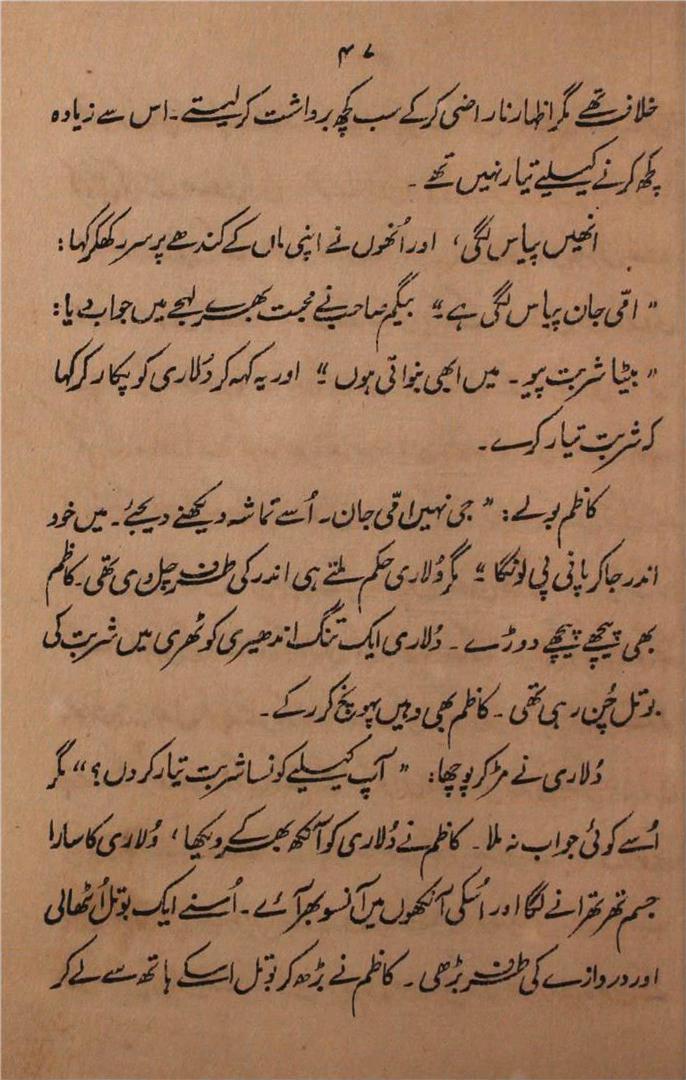 ۴۷
خلاف تھے مگر اظہار ناراضی کرکے سب کچھ برداشت کر لیتے۔ اس سے زیادہ
کچھ کرنے کیلیے تیار نہیں تھے۔
انھیں پیاس لگی، اور اُنھوں نے اپنی ماں کے کندھے پر سر رکھکر کہا:
"امّی جان پیاس لگی ہے" بیگم صاحب نے محبت بھرے لہجے میں جواب دیا:
"بیٹا شربت پیو۔ میں ابھی بنواتی ہوں" اور یہ کہہ کر دُلاری کو پکار کر کہا
کہ شربت تیار کرے۔
کاظم بولے: "جی نہیں امّی جان۔ اُسے تماشہ دیکھنے دیجئے۔ میں خود
اندر جاکر پانی پی لونگا" مگر دُلاری حکم ملتے ہی اندر کی طرف چل دی تھی۔ کاظم
بھی پیچھے پیچھے دوڑے۔ دُلاری ایک تنگ اندھیری کوٹھری میں شربت کی
بوتل چُن رہی تھی۔ کاظم بھی وہیں پہونچ کر رکے۔
دُلاری نے مڑکر پوچھا: "آپ کیلیے کونسا شربت تیار کر دوں؟" مگر
اُسے کوئی جواب نہ ملا۔ کاظم نے دُلاری کو آنکھ بھر کے دیکھا، دُلاری کا سارا
جسم تھرتھرانے لگا اور اُسکی آنکھوں میں آنسو بھر آئے۔ اُسنے ایک بوتل اُٹھالی
اور دروازے کی طرف بڑھی۔ کاظم نے بڑھ کر بوتل اسکے ہاتھ سے لے کر